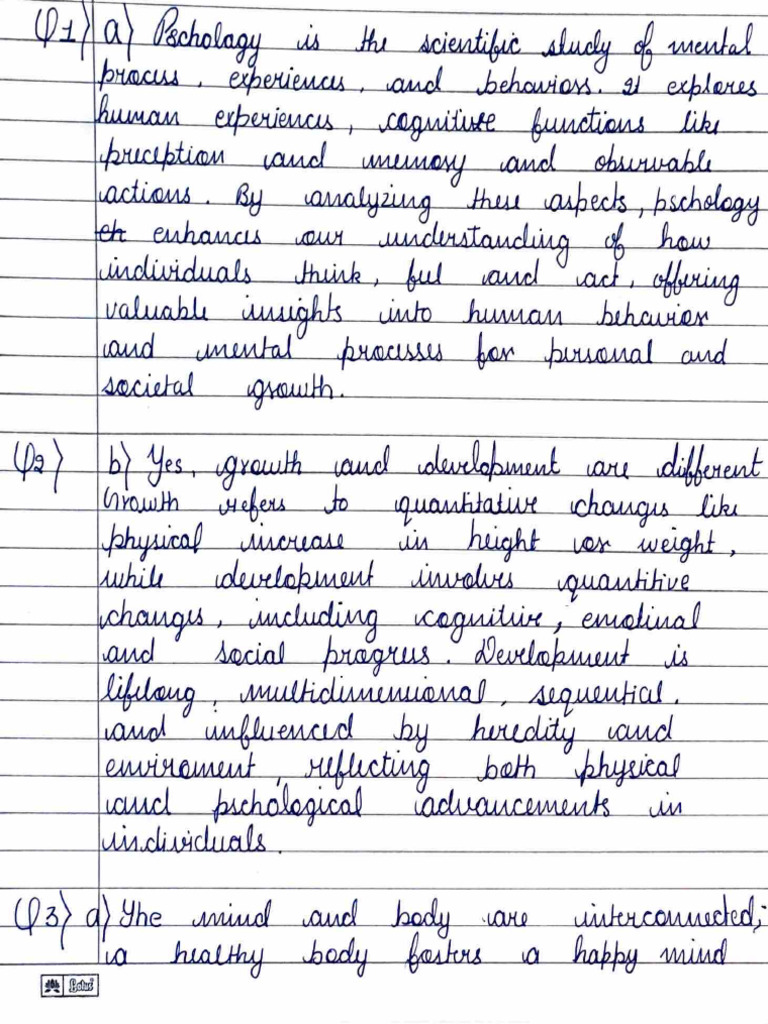 Q1) a) Pschology is the scientific study of mental
procss, experiences, and behaviors. It explores
human experiences, cognitive functions like
preception and memory and observable
actions. By analyzing these aspects, pschology
eh enhances our understanding of how
individuals think, feel and act, offering
valuable insights into human behavior
and mental processes for personal and
societal growth.
Q2) b) Yes, growth and development are different
Growth refers to quantitative changes like
physical increase in height or weight,
while development involves quantitive
changes, including cognitive, emotinal
and social progress. Development is
lifelong, multidimensional, sequential,
and influenced by heredity and
enviroment, reflecting both physical
and pschological advancements in
individuals.
Q3) a) The mind and body are interconnected;
a healthy body fosters a happy mind
Lotus